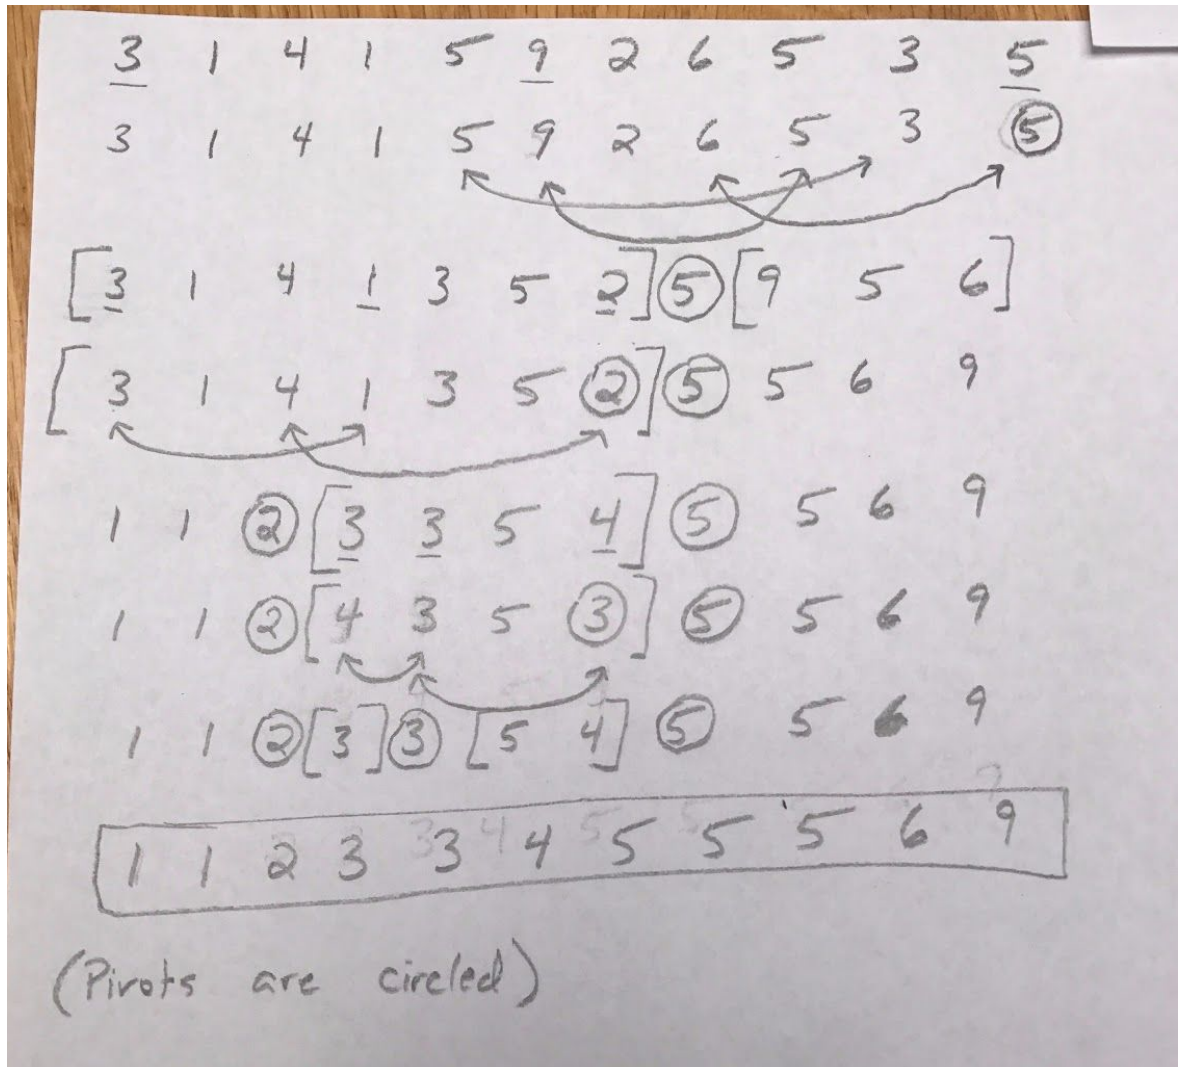 3 1 4 1 5 9 2 6 5 3 5
3 1 4 1 5 9 2 6 5 3 5
[3 1 4 1 3 5 2] 5 [9 5 6]
[3 1 4 1 3 5 2] 5 5 6 9
1 1 2 [3 3 5 4] 5 5 6 9
1 1 2 [4 3 5 3] 5 5 6 9
1 1 2 [3] 3 [5 4] 5 5 6 9
1 1 2 3 3 4 5 5 5 6 9
(Pivots are circled)